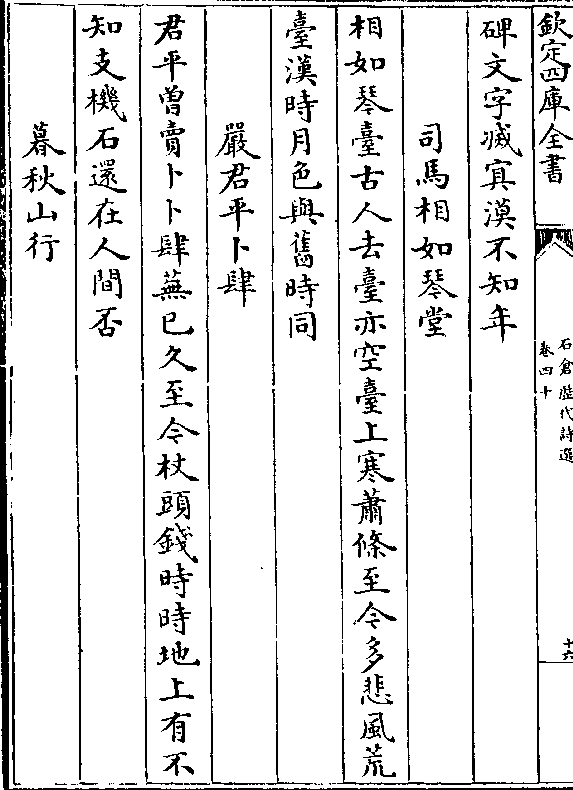 欽定四庫全書
石倉歷代詩選
卷四十
十六
碑文字滅㝠漠不知年
司馬相如琴堂
相如琴臺古人去臺亦空臺上寒蕭條至今多悲風荒
臺漢時月色與舊時同
嚴君平卜肆
君平曾賣卜卜肆蕪已久至今杖頭錢時時地上有不
知支機石還在人間否
暮秋山行